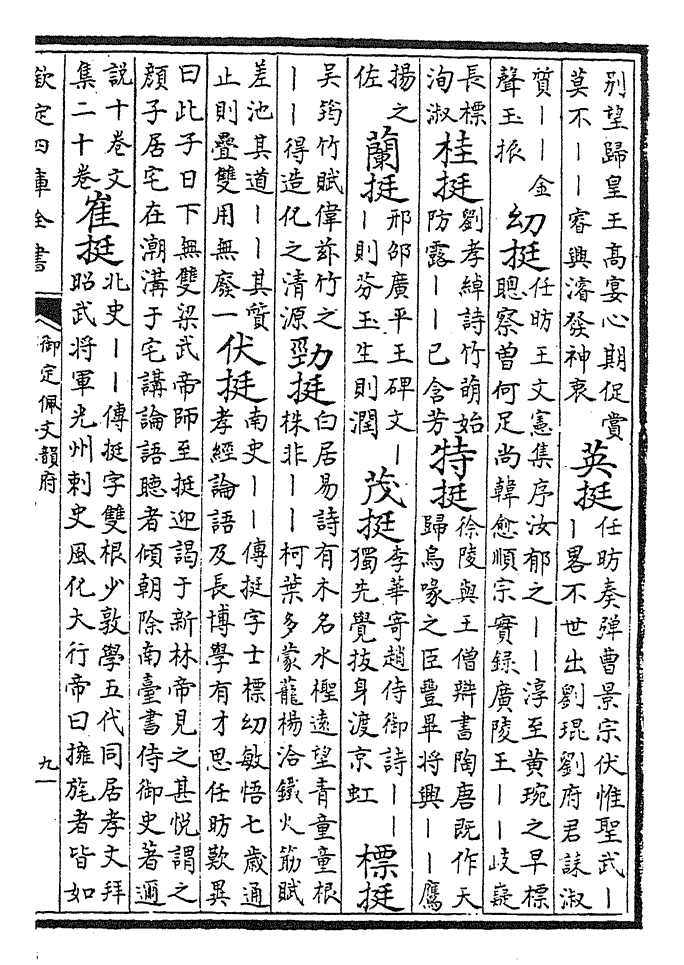 别望歸皇王高宴心期促賞
莫不｜｜睿興濬發神衷
英挺
任昉奏彈曹景宗伏惟聖武｜
｜畧不世出劉琨劉府君誄淑
質｜｜金
聲玉振
幼挺
任昉王文憲集序汝郁之｜｜淳至黄琬之早標
聰察曽何足尚韓愈順宗實録廣陵王｜｜岐嶷
長標
洵淑
桂挺
劉孝綽詩竹萌始
防露｜｜已含芳
特挺
徐陵與王僧辯書陶唐既作天
歸烏喙之臣豐畢将興｜｜鷹
揚之
佐
蘭挺
邢邵廣平王碑文｜
｜則芬玉生則潤
茂挺
李華寄趙侍御詩｜｜
獨先覺抜身渡京虹
標挺
吴筠竹賦偉兹竹之
｜｜得造化之清源
勁挺
白居易詩有木名水檉逺望青童童根
株非｜｜柯葉多蒙籠楊洽鐵火筋賦
差池其道｜｜其質
止則疊雙用無廢一
伏挺
南史｜｜傳挺字士標幼敏悟七歲通
孝經論語及長博學有才思任昉歎異
曰此子日下無雙梁武帝師至挺迎謁于新林帝見之甚悦謂之
顔子居宅在潮溝于宅講論語聽者傾朝除南臺書侍御史著邇
說十卷文
集二十卷
崔挺
北史｜｜傳挺字雙根少敦學五代同居孝文拜
昭武将軍光州刺史風化大行帝曰擁旄者皆如
欽定四庫全書
御定佩文韻府
九一